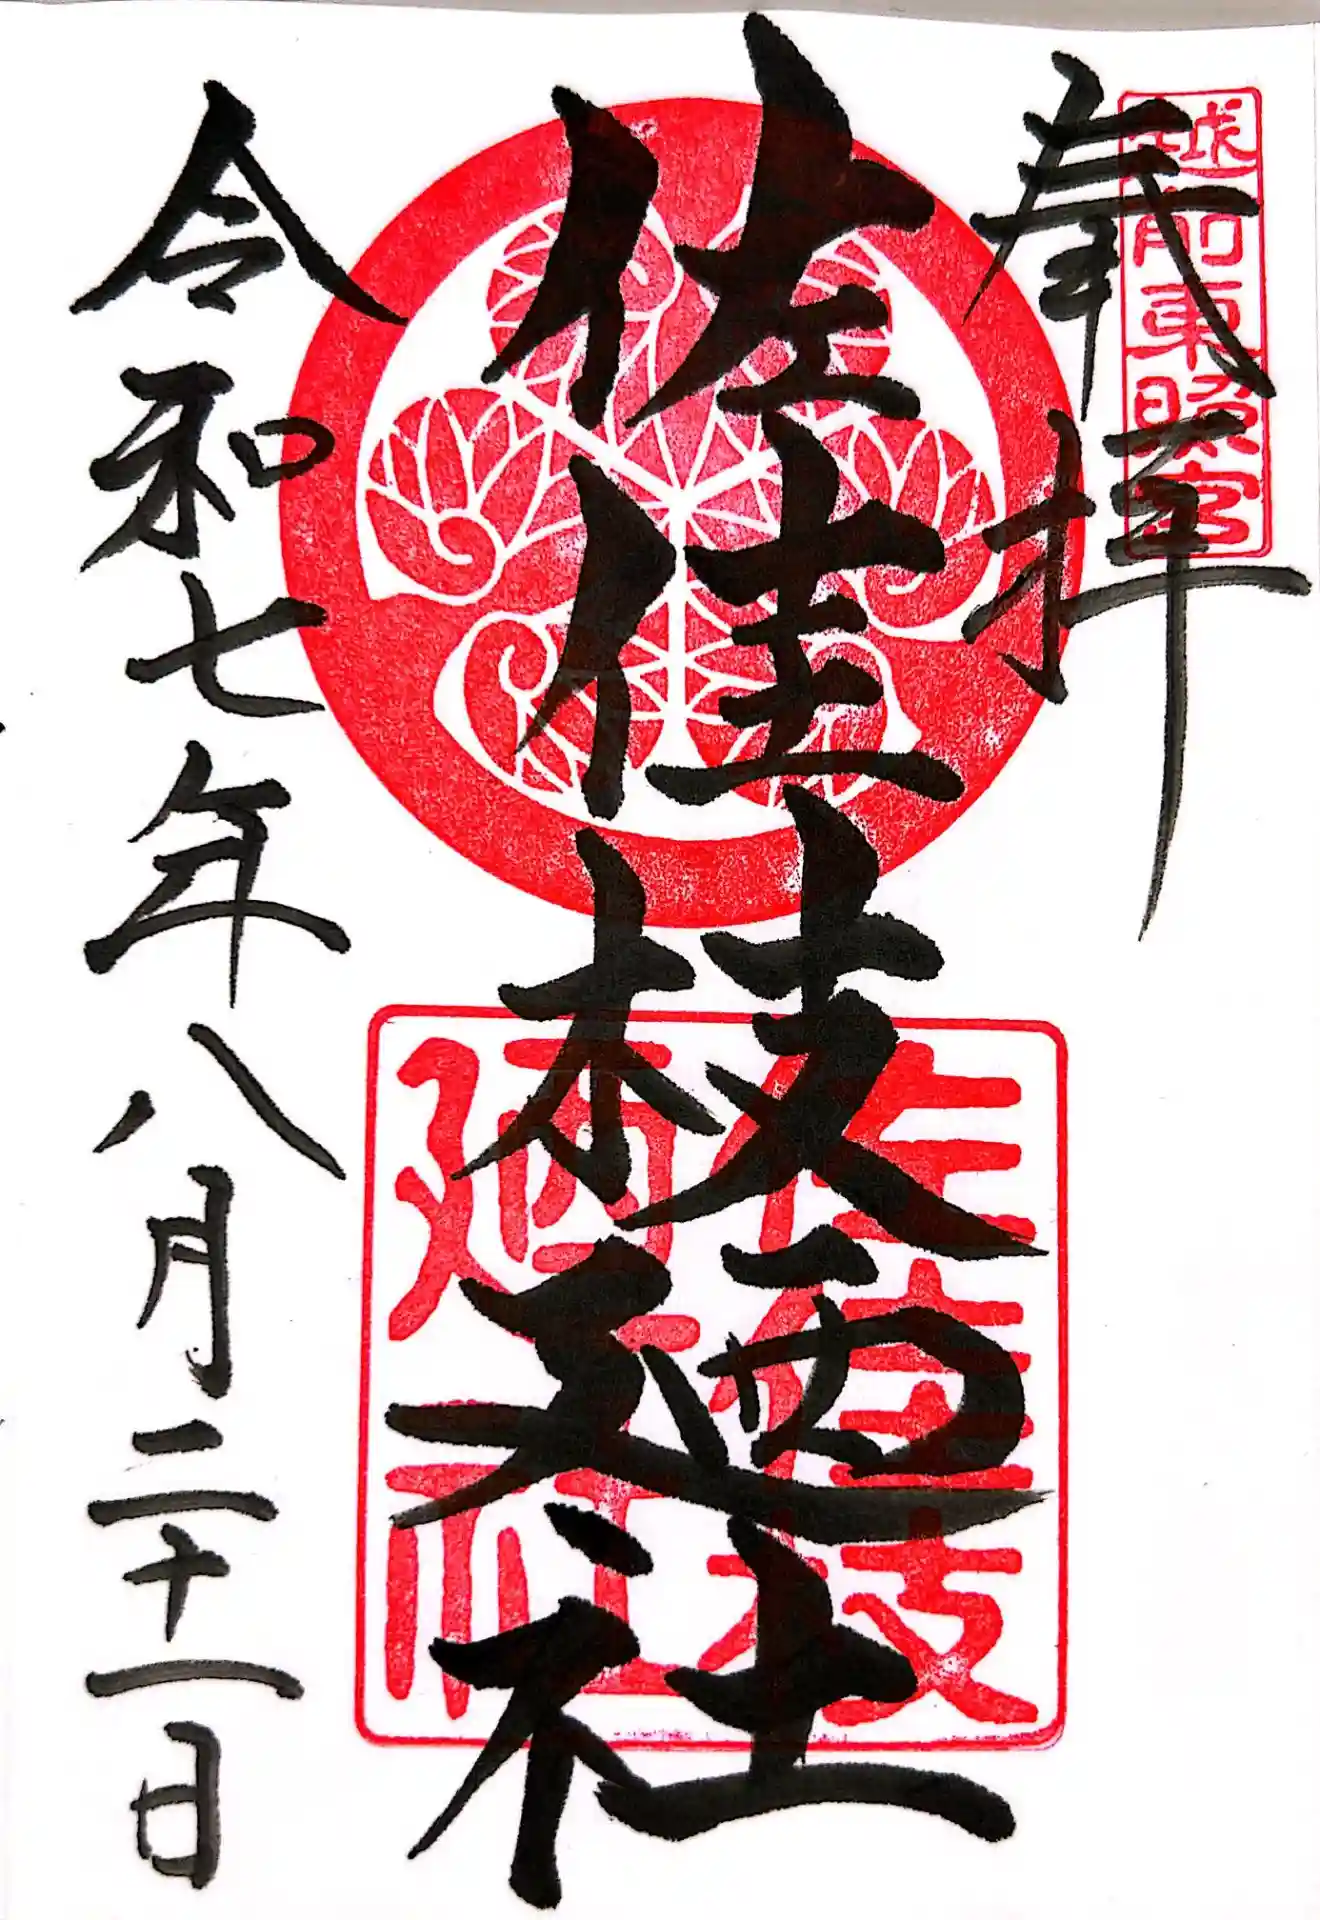 奉拝
越前東照宮
佐佳枝廼社
佐佳枝
廼社
令和七年八月二十一日